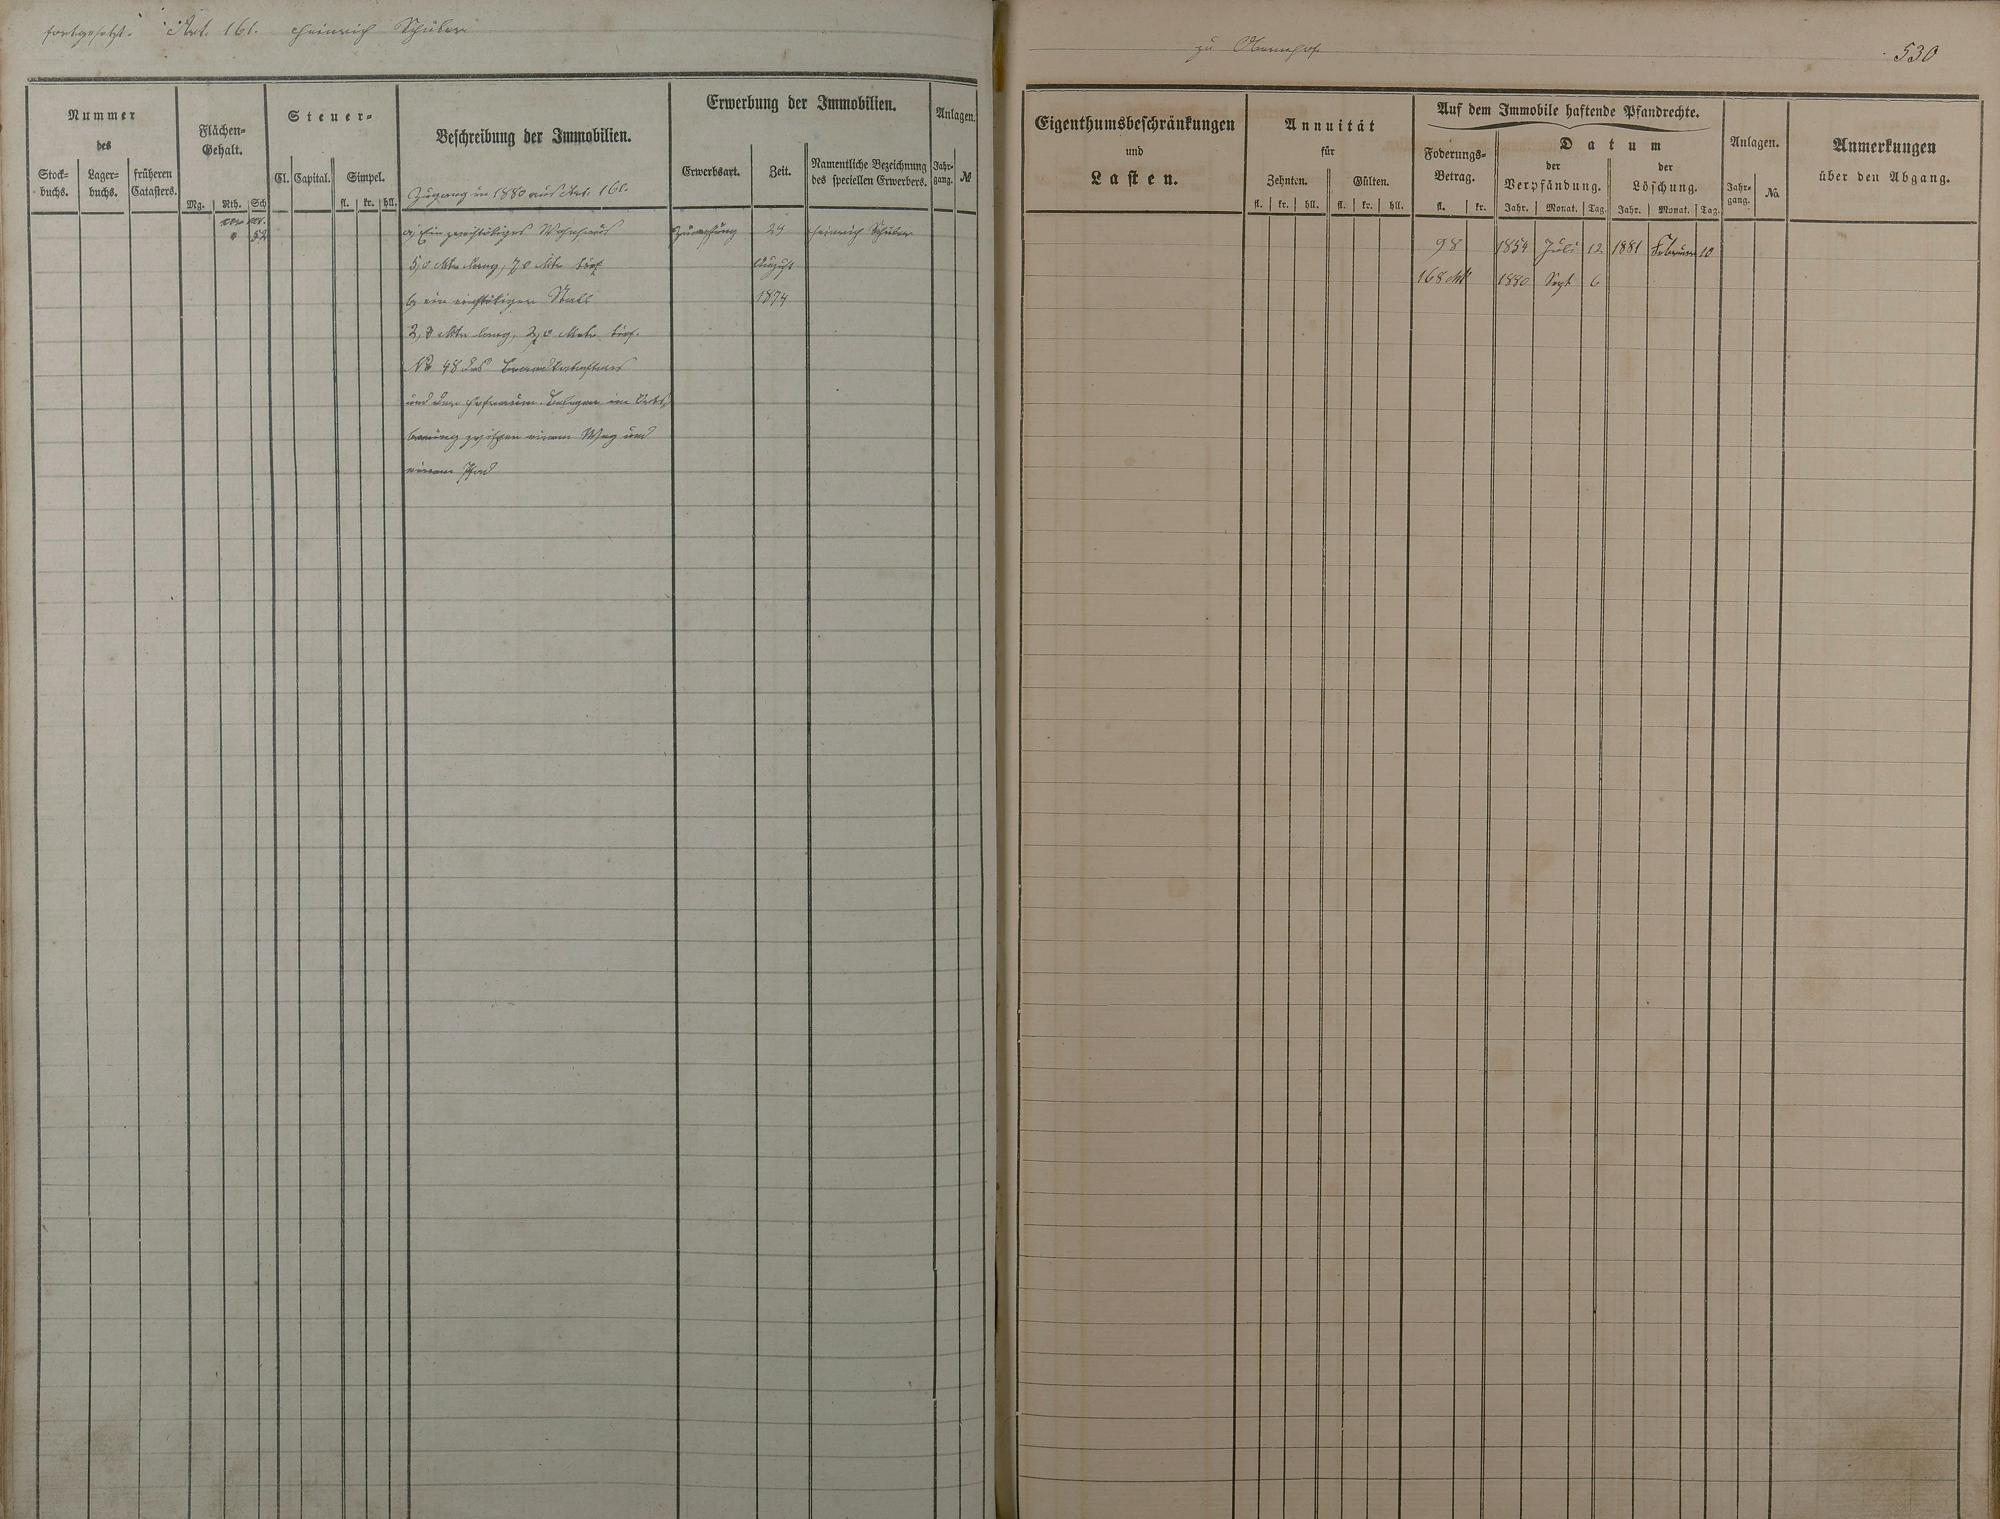 fortgesetzt. Art. 161. Heinrich Schuler
Nummer
des
Stock-
buchs.
Lager-
buchs.
früheren
Catasters.
Flächen-
Gehalt.
Mg. Rth. Sch
Steuer-
Cl. Capital. Simpel.
fl. kr. hll.
Beschreibung der Immobilien.
Zugang in 1880 aus Art. 161.
Erwerbung der Immobilien.
Erwerbsart. Zeit.
Namentliche Bezeichnung
des speciellen Erwerbers.
Anlagen.
Jahr-
gang. №
52
a, Ein zweistöckiges Wohnhaus
29 Heinrich Schuler
5,0 Mtr lang, 7,0 Mtr tief
August
b, ein einstöckiger Stall
1874
2,8 Mtr lang, 2,0 Metr. tief.
№ 48 des Brandkatasters
und der Hofraum. Belegen im Orts-
bering zwischen einem Weg und
einem Pfad
zu Obernhof
530
Eigenthumsbeschränkungen
und
Lasten.
Annuität
für
Zehnten. Gülten.
fl. kr. hll. fl. kr. hll.
Auf dem Immobile haftende Pfandrechte.
Foderungs-
Betrag.
fl. kr.
Datum
der
Verpfändung.
Jahr. Monat. Tag.
der
Löschung.
Jahr. Monat. Tag.
Anlagen.
Jahr-
gang. No.
Anmerkungen
über den Abgang.
98 1854 Juli 12 1881 Februar 10
168 Mk 1880 Sept 6